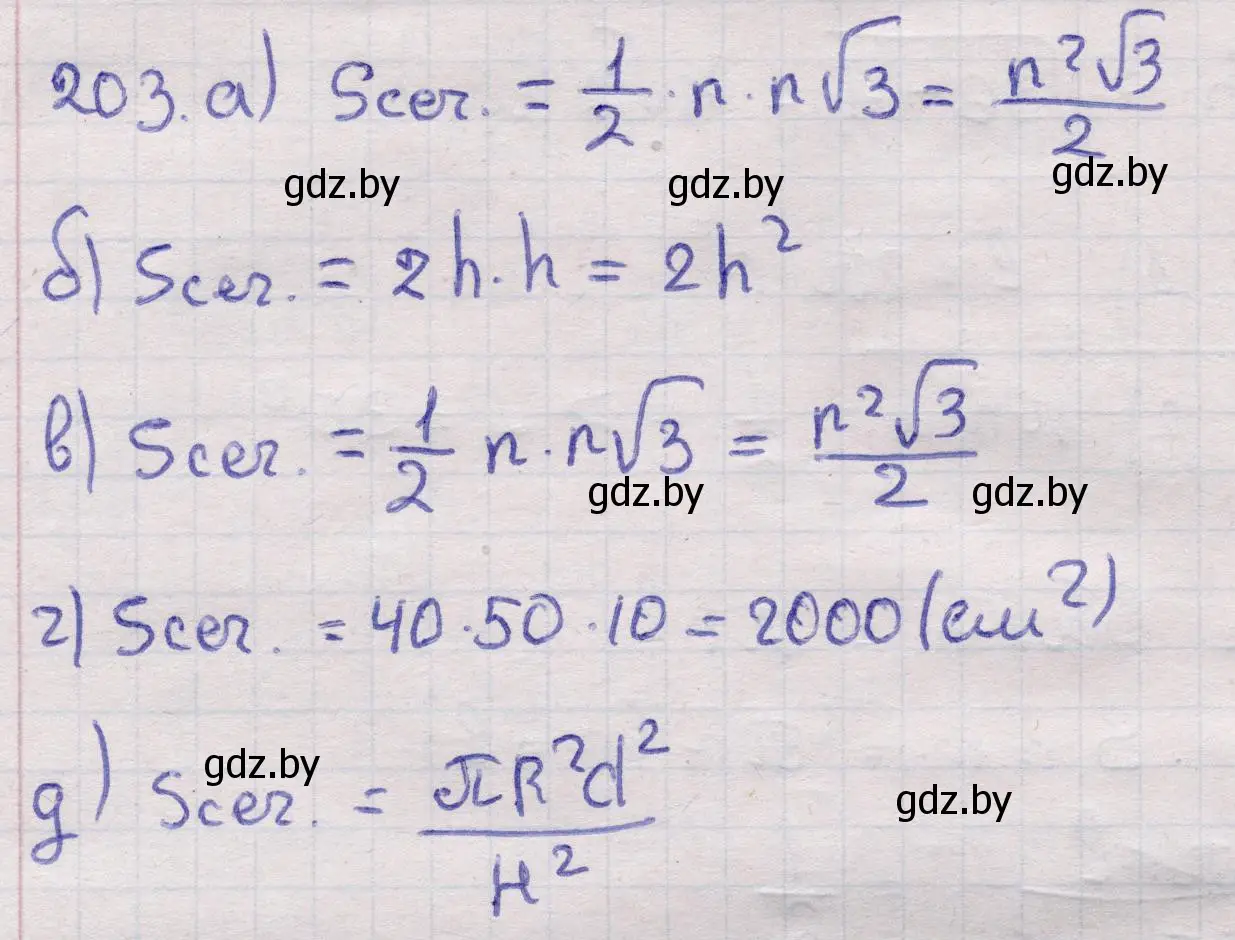 203. а) Sсег. = 1/2 · n · n√3 = n²√3/2
gdz.by gdz.by gdz.by
б) Sсег. = 2h · h = 2h²
в) Sсег. = 1/2 n · n√3 = n²√3/2
gdz.by gdz.by
г) Sсег. = 40 · 50 · 10 = 2000 (см²)
д) Sсег. = πR²d²/H²
gdz.by gdz.by